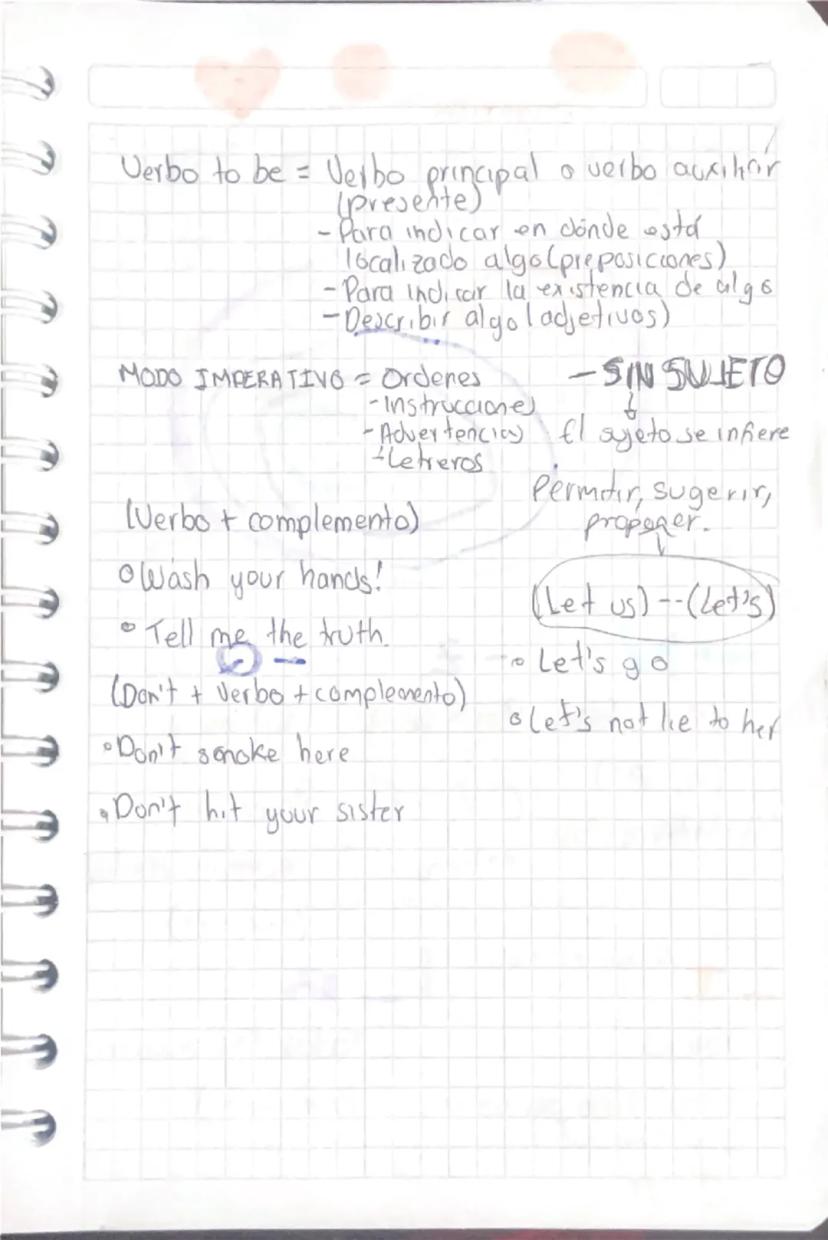 Verbo to be = Verbo principal o verbo auxiliar
(presente)
- Para indicar en dónde está
localizado algo (preposiciones)
- Para indicar la existencia de algo
- Describir algo (adjetivos)
MODO IMPERATIVO = Ordenes
- Instrucciones
- Advertencias
- Letreros
(Verbo + complemento)
o Wash your hands!
o Tell me the truth.
(Don't + Verbo + complemento)
o Don't smoke here
o Don't hit your sister
- SIN SUJETO
El sujeto se infiere
Permitir, sugerir,
proponer.
(Let us) -- (Let's)
o Let's go
o Let's not lie to her